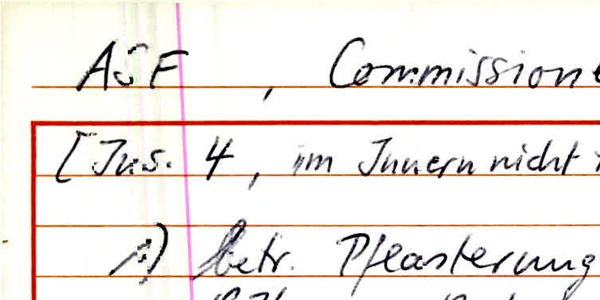 ASF , Commission
[Ins. 4, im Innern nicht
1) betr. Pflasterung